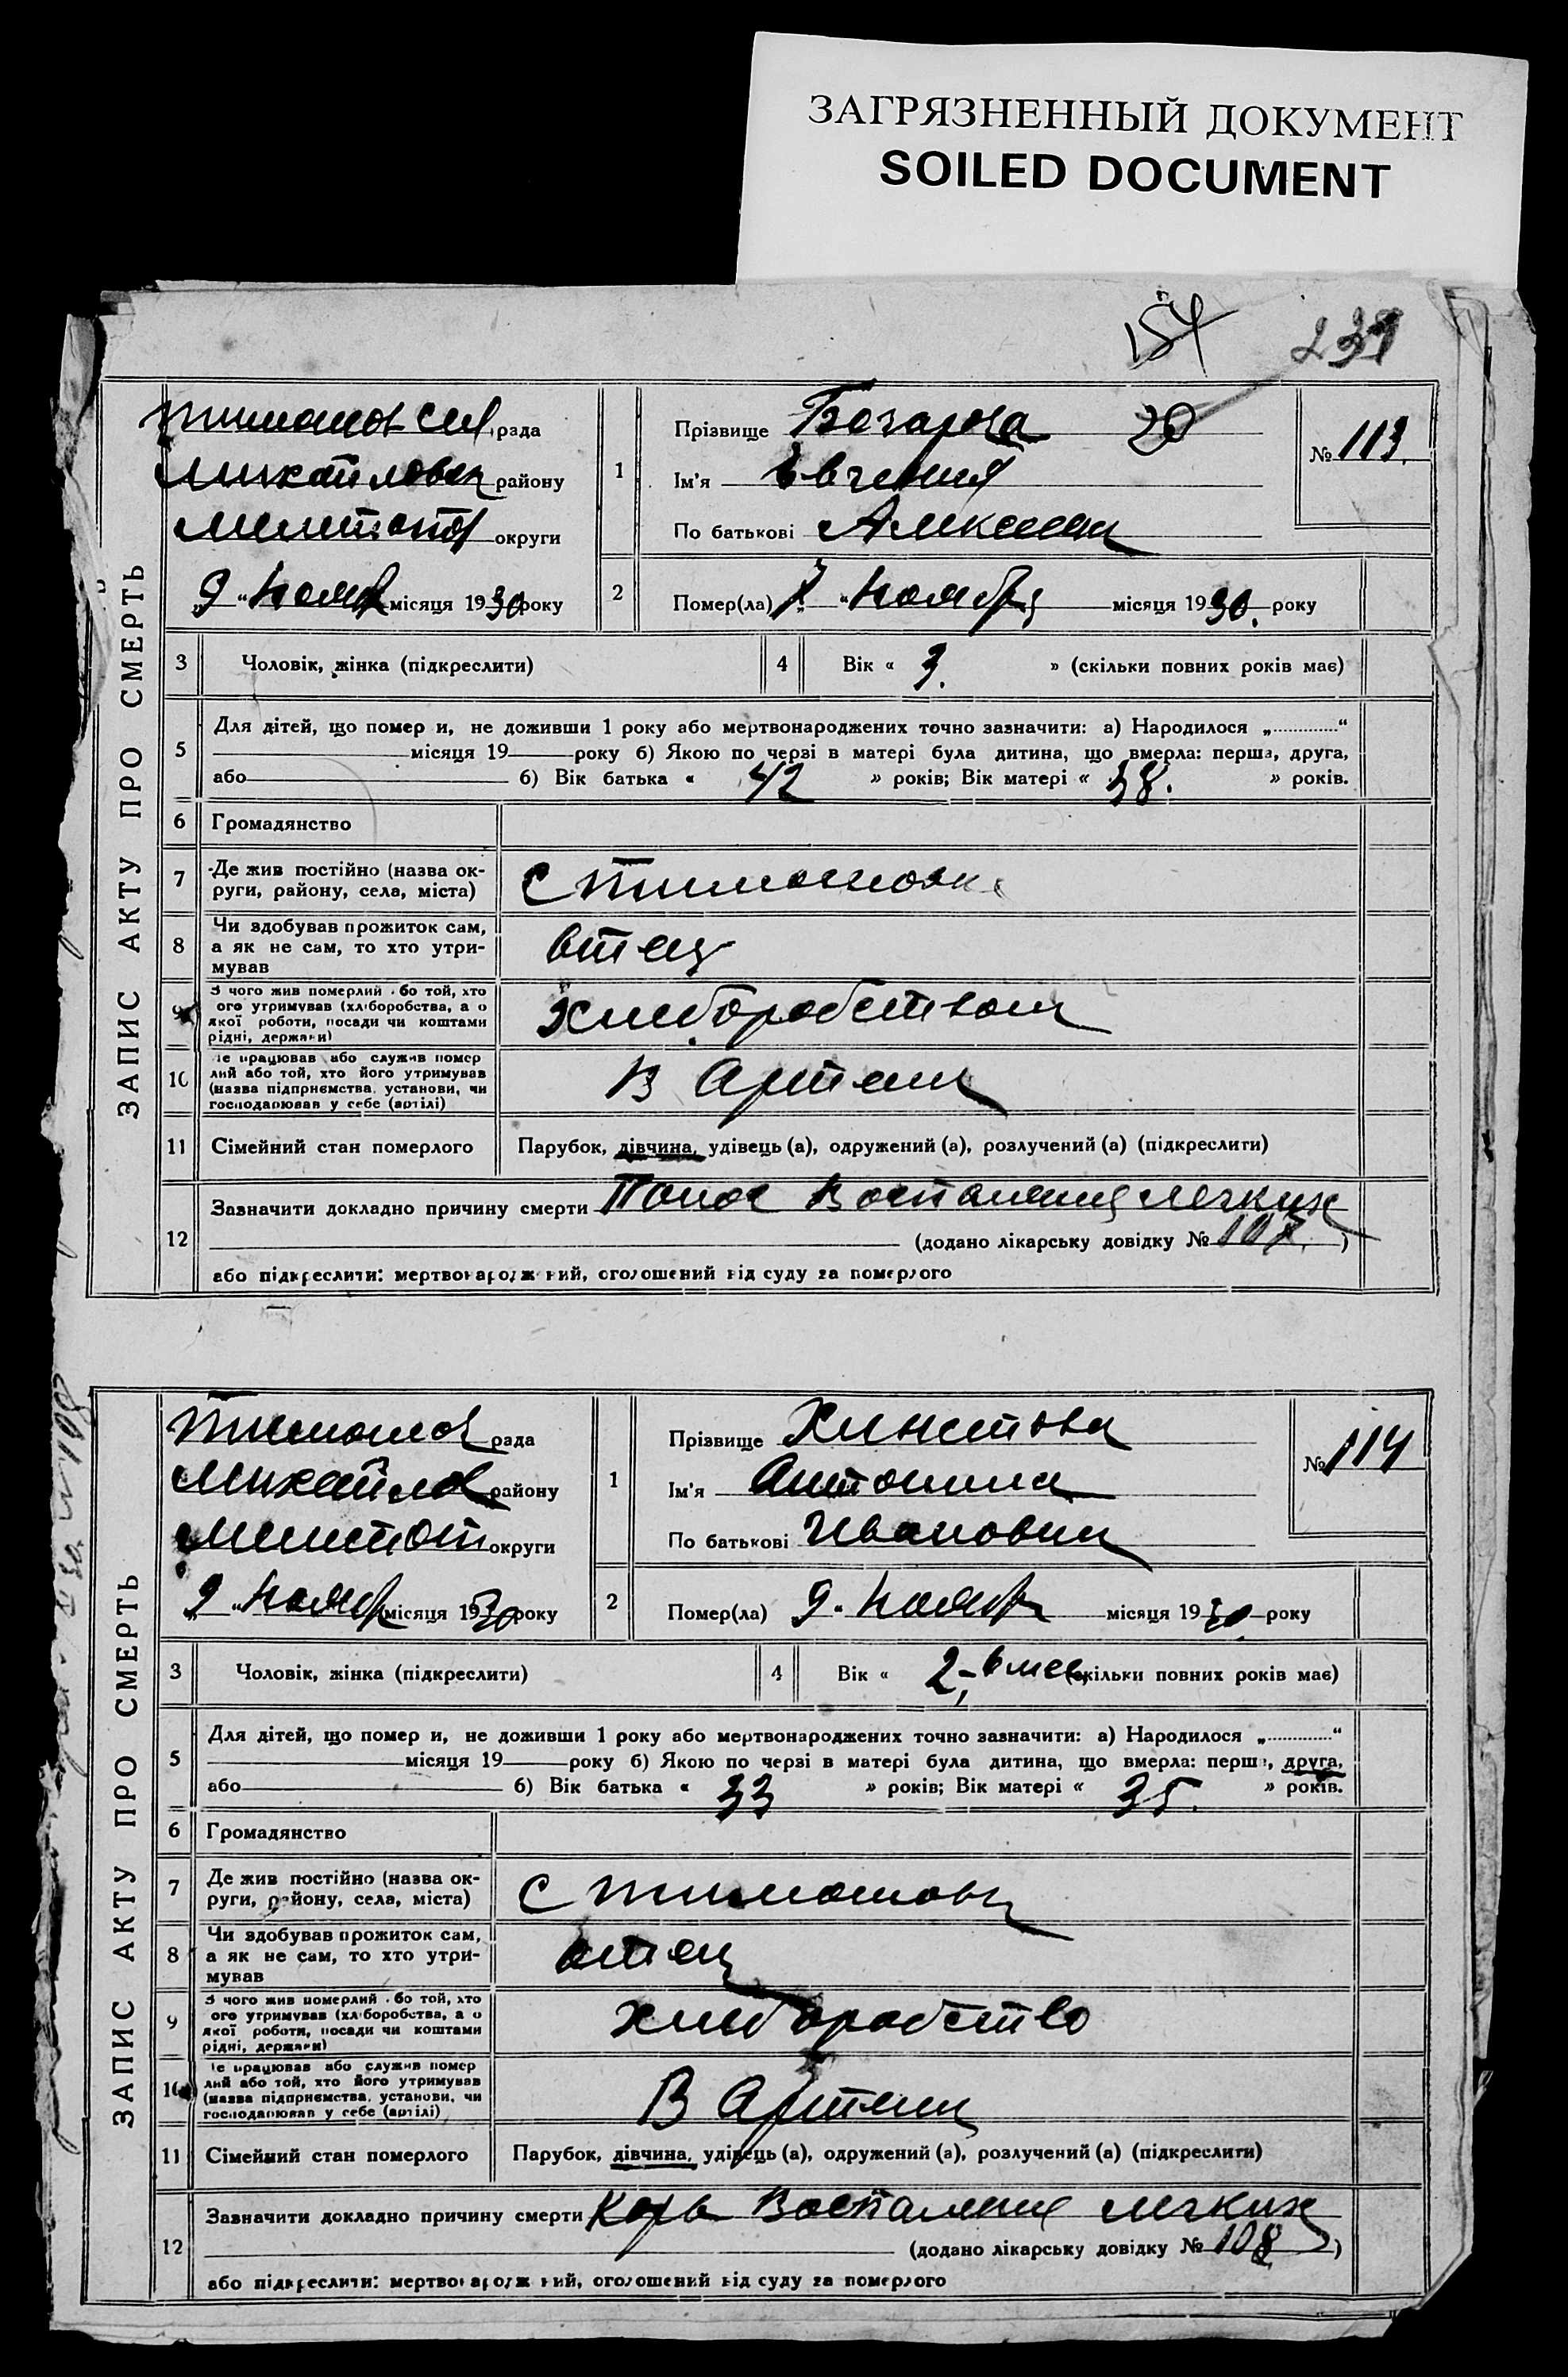 ЗАГРЯЗНЕННЫЙ ДОКУМЕНТ
SOILED DOCUMENT
154 239
ЗАПИС АКТУ ПРО СМЕРТЬ
рада
району
Мелитоп округи
9 „ Ноябр місяця 1930 року
1
Прізвище Бочарова 20
Ім'я Евгения
По батькові Алексеевн
№ 113.
2 Помер(ла) 7 „ Ноября місяця 1930. року
3 Чоловік, жінка (підкреслити)
4 Вік « 3. » (скільки повних років має)
5 Для дітей, що помер и, не доживши 1 року або мертвонароджених точно зазначити: а) Народилося „............“
місяця 19 року б) Якою по черзі в матері була дитина, що вмерла: перша, друга,
або б) Вік батька « 42 » років; Вік матері « 38. » років.
6 Громадянство
7 Де жив постійно (назва ок-
руги, району, села, міста)
С Тимошовк
8 Чи здобував прожиток сам,
а як не сам, то хто утри-
мував
отец
9 З чого жив померлий бо той, хто
ого утримував (хліборобства, а о
якої роботи, посади чи коштами
рідні, держави)
Хлеборобством
10 е працював або служив помер
лий або той, хто його утримував
(назва підприємства, установи, чи
господарював у себе (артілі)
В Артели
11 Сімейний стан померлого Парубок, дівчина, удівець (а), одружений (а), розлучений (а) (підкреслити)
12 Зазначити докладно причину смерти Понос Воспаления легких
(додано лікарську довідку № 107. )
або підкреслити: мертвонароджений, оголошений від суду за померлого
ЗАПИС АКТУ ПРО СМЕРТЬ
рада
Михайлов району
Мелитоп округи
9 „ Ноябр місяця 1930 року
1
Прізвище
Ім'я Антонина
По батькові Ивановна
№ 114
2 Помер(ла) 9 „ Ноябр місяця 1930. року
3 Чоловік, жінка (підкреслити)
4 Вік « 2, 6 мес. (скільки повних років має)
5 Для дітей, що помер и, не доживши 1 року або мертвонароджених точно зазначити: а) Народилося „............“
місяця 19 року б) Якою по черзі в матері була дитина, що вмерла: перша, друга,
або б) Вік батька « 33 » років; Вік матері « 35. » років.
6 Громадянство
7 Де жив постійно (назва ок-
руги, району, села, міста)
С Тимошовк
8 Чи здобував прожиток сам,
а як не сам, то хто утри-
мував
отец
9 З чого жив померлий бо той, хто
ого утримував (хліборобства, а о
якої роботи, посади чи коштами
рідні, держави)
Хлеборобство
10 е працював або служив помер
лий або той, хто його утримував
(назва підприємства, установи, чи
господарював у себе (артілі)
В Артели
11 Сімейний стан померлого Парубок, дівчина, удівець (а), одружений (а), розлучений (а) (підкреслити)
12 Зазначити докладно причину смерти Корь Воспаления легких
(додано лікарську довідку № 108 )
або підкреслити: мертвонароджений, оголошений від суду за померлого